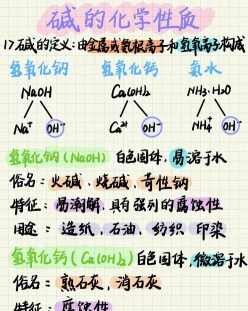 碱的化学性质
17碱的定义:由金属或氨根离子和氢氧离子构成
氢氧化钠 氢氧化钙 氨水
NaOH Ca(OH)₂ NH₃·H₂O
Na⁺ OH⁻ Ca²⁺ OH⁻ NH₄⁺ OH⁻
氢氧化钠(NaOH) 白色固体,易溶于水
俗名:火碱,烧碱,苛性钠
特征:易潮解,具有强烈的腐蚀性
用途:造纸,石油,纺织 印染
氢氧化钙(Ca(OH)₂)白色固体,微溶于水
俗名:熟石灰,消石灰
特征:腐蚀性